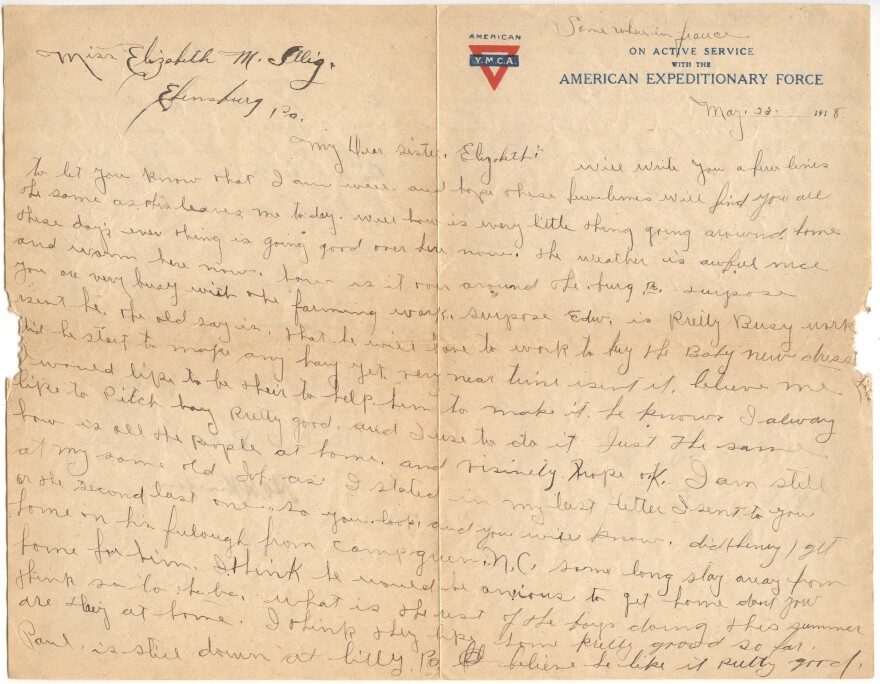 Miss Elizabeth M. Illig.
Ebensburg Pa.
Some where in france
AMERICAN
Y.M.C.A.
ON ACTIVE SERVICE
WITH THE
AMERICAN EXPEDITIONARY FORCE
May. 22. 1918
My Dear sister, Elizabeth"
will write you a few lines
to let you know what I am well. and hope these few lines will find you all
the same as this leaves me to day. well how is every little thing going around home
these days ever thing is going good over here now. the weather is awful nice
and warm here now. how is it over around the. burg Pa. surpose
you are very busy with the farming work. surpose Edw. is Pretty Busy work
isent he. the old say is. that he will have to work to buy the Baby new dress
did he start to make any hay yet. very near time isent it. believe me
I would like to be their to help him to make it. he knows I alway
like to Pitch hay Pretty good. and I use to do it Just the same
how is all the People at home. and visinely hope oK. I am still
at my same old Job as I stated in my last letter I sent to you
or the second last one. so you. look and you will know. did Henry get
home on his fulough from camp green, N.C. some long stay away from
home for him. I think he would be anxious to get home dont you
think so to. he be. what is the rest of the boys doing this summer
are they at home. I think they like some Pretty good so far.
Paul. is still down at lilly. Pa believe he like it Pretty good.